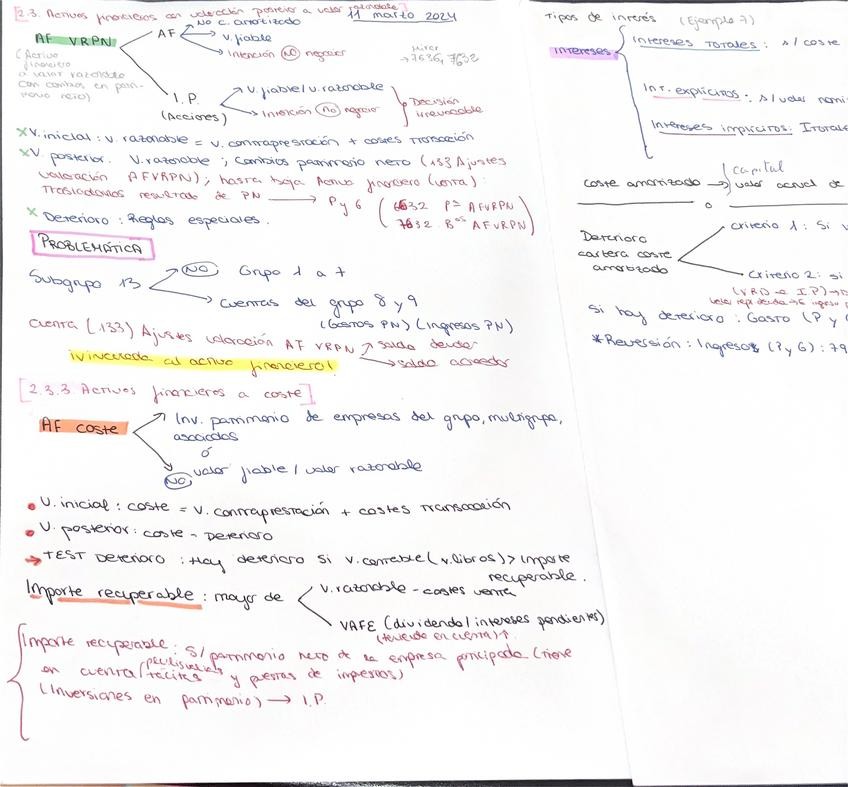 [2.3. Activos financieros con valoración posterior a valor razonable]
11 marzo 2024
AF VRPN
(Activo financiero a valor razonable con cambios en patrimonio neto)
AF
No c. amortizado
v. fiable
Intención NO negociar
Mirar
→ 7636, 7632
I.P.
(Acciones)
v. fiable / v. razonable
Intención no negociar
Decisión irrevocable
x V. inicial: v. razonable = v. contraprestación + costes transacción
x V. posterior. v. razonable; cambios patrimonio neto (133 Ajustes
valoración AFVRPN), hasta baja Activo financiero (venta):
Trasladarlos resultado de PN → P y G
6632 Pª AFVRPN
7632 Bºs AFVRPN
x Deterioro: Reglas especiales.
PROBLEMÁTICA
Subgrupo 13
NO Grupo 1 a 7
Cuentas del grupo 8 y 9
(Gastos PN) (Ingresos PN)
Cuenta (133) Ajustes valoración AF VRPN
saldo deudor
saldo acreedor
¡vinculada al activo financiero!
[2.3.3. Activos financieros a coste]
AF COSTE
Inv. patrimonio de empresas del grupo, multigrupo,
asociadas
ó
NO valor fiable / valor razonable
V. inicial: coste = v. contraprestación + costes transacción
V. posterior: coste - Deterioro
→ TEST Deterioro: Hay deterioro si v. contable (v. libros) > importe
recuperable.
Importe recuperable: mayor de
v. razonable - costes venta
VAFE (dividendo / intereses pendientes)
(teniendo en cuenta)
Importe recuperable: s/ patrimonio neto de la empresa participada (tiene
en cuenta plusvalías tácitas y netas de impuestos)
(Inversiones en patrimonio) → I.P.
Tipos de interés (Ejemplo 7)
Intereses
Intereses TOTALES: s/ coste
Int. explícitos: s/ valor nomi
Intereses implícitos: Itotale
Coste amortizado →
capital
valor actual de
o
Deterioro
cartera coste
amortizado
Criterio 1: Si v
Criterio 2: si
Si hay deterioro: Gasto (P y G
*Reversión: Ingresos (P y G): 79